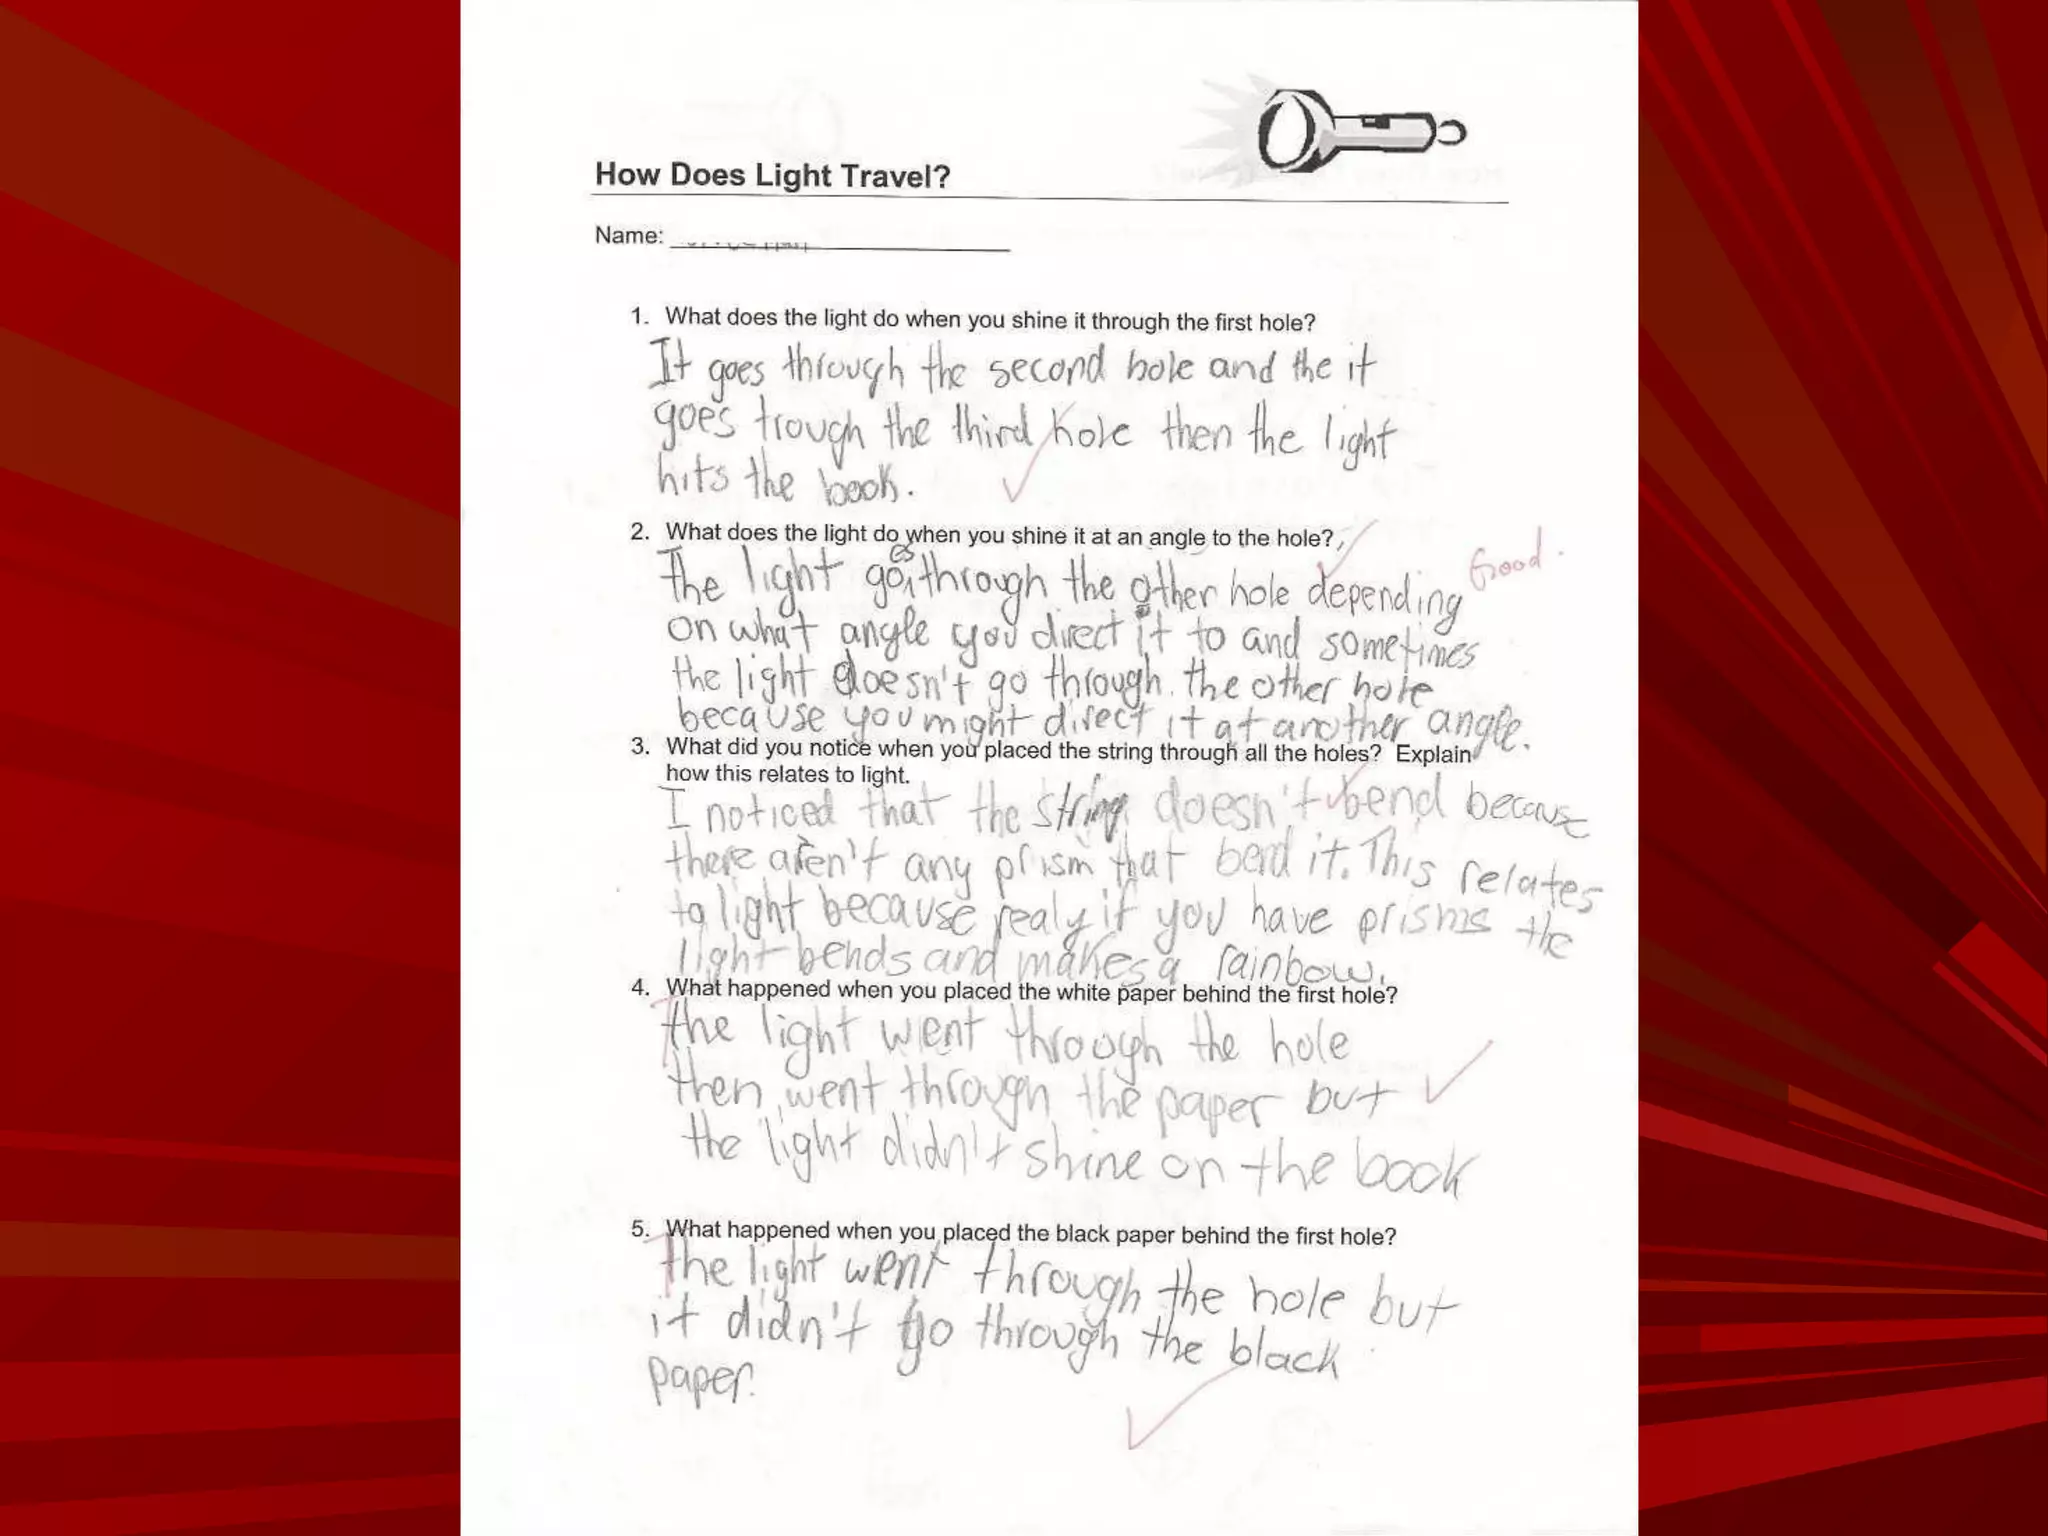 How Does Light Travel?
Name:
1. What does the light do when you shine it through the first hole?
It goes through the second hole and the it
goes trough the third hole then the light
hits the book.
2. What does the light do when you shine it at an angle to the hole?
Good.
The light goes through the other hole depending
on what angle you direct it to and sometimes
the light doesn't go through the other hole
because you might direct it at another angle.
3. What did you notice when you placed the string through all the holes? Explain
how this relates to light.
I noticed that the string doesn't bend because
there aren't any prism that bend it. This relates
to light because realy if you have prisms the
light bends and makes a rainbow.
4. What happened when you placed the white paper behind the first hole?
The light went through the hole
then went through the paper but
the light didn't shine on the book
5. What happened when you placed the black paper behind the first hole?
The light went through the hole but
it didn't go through the black
paper.